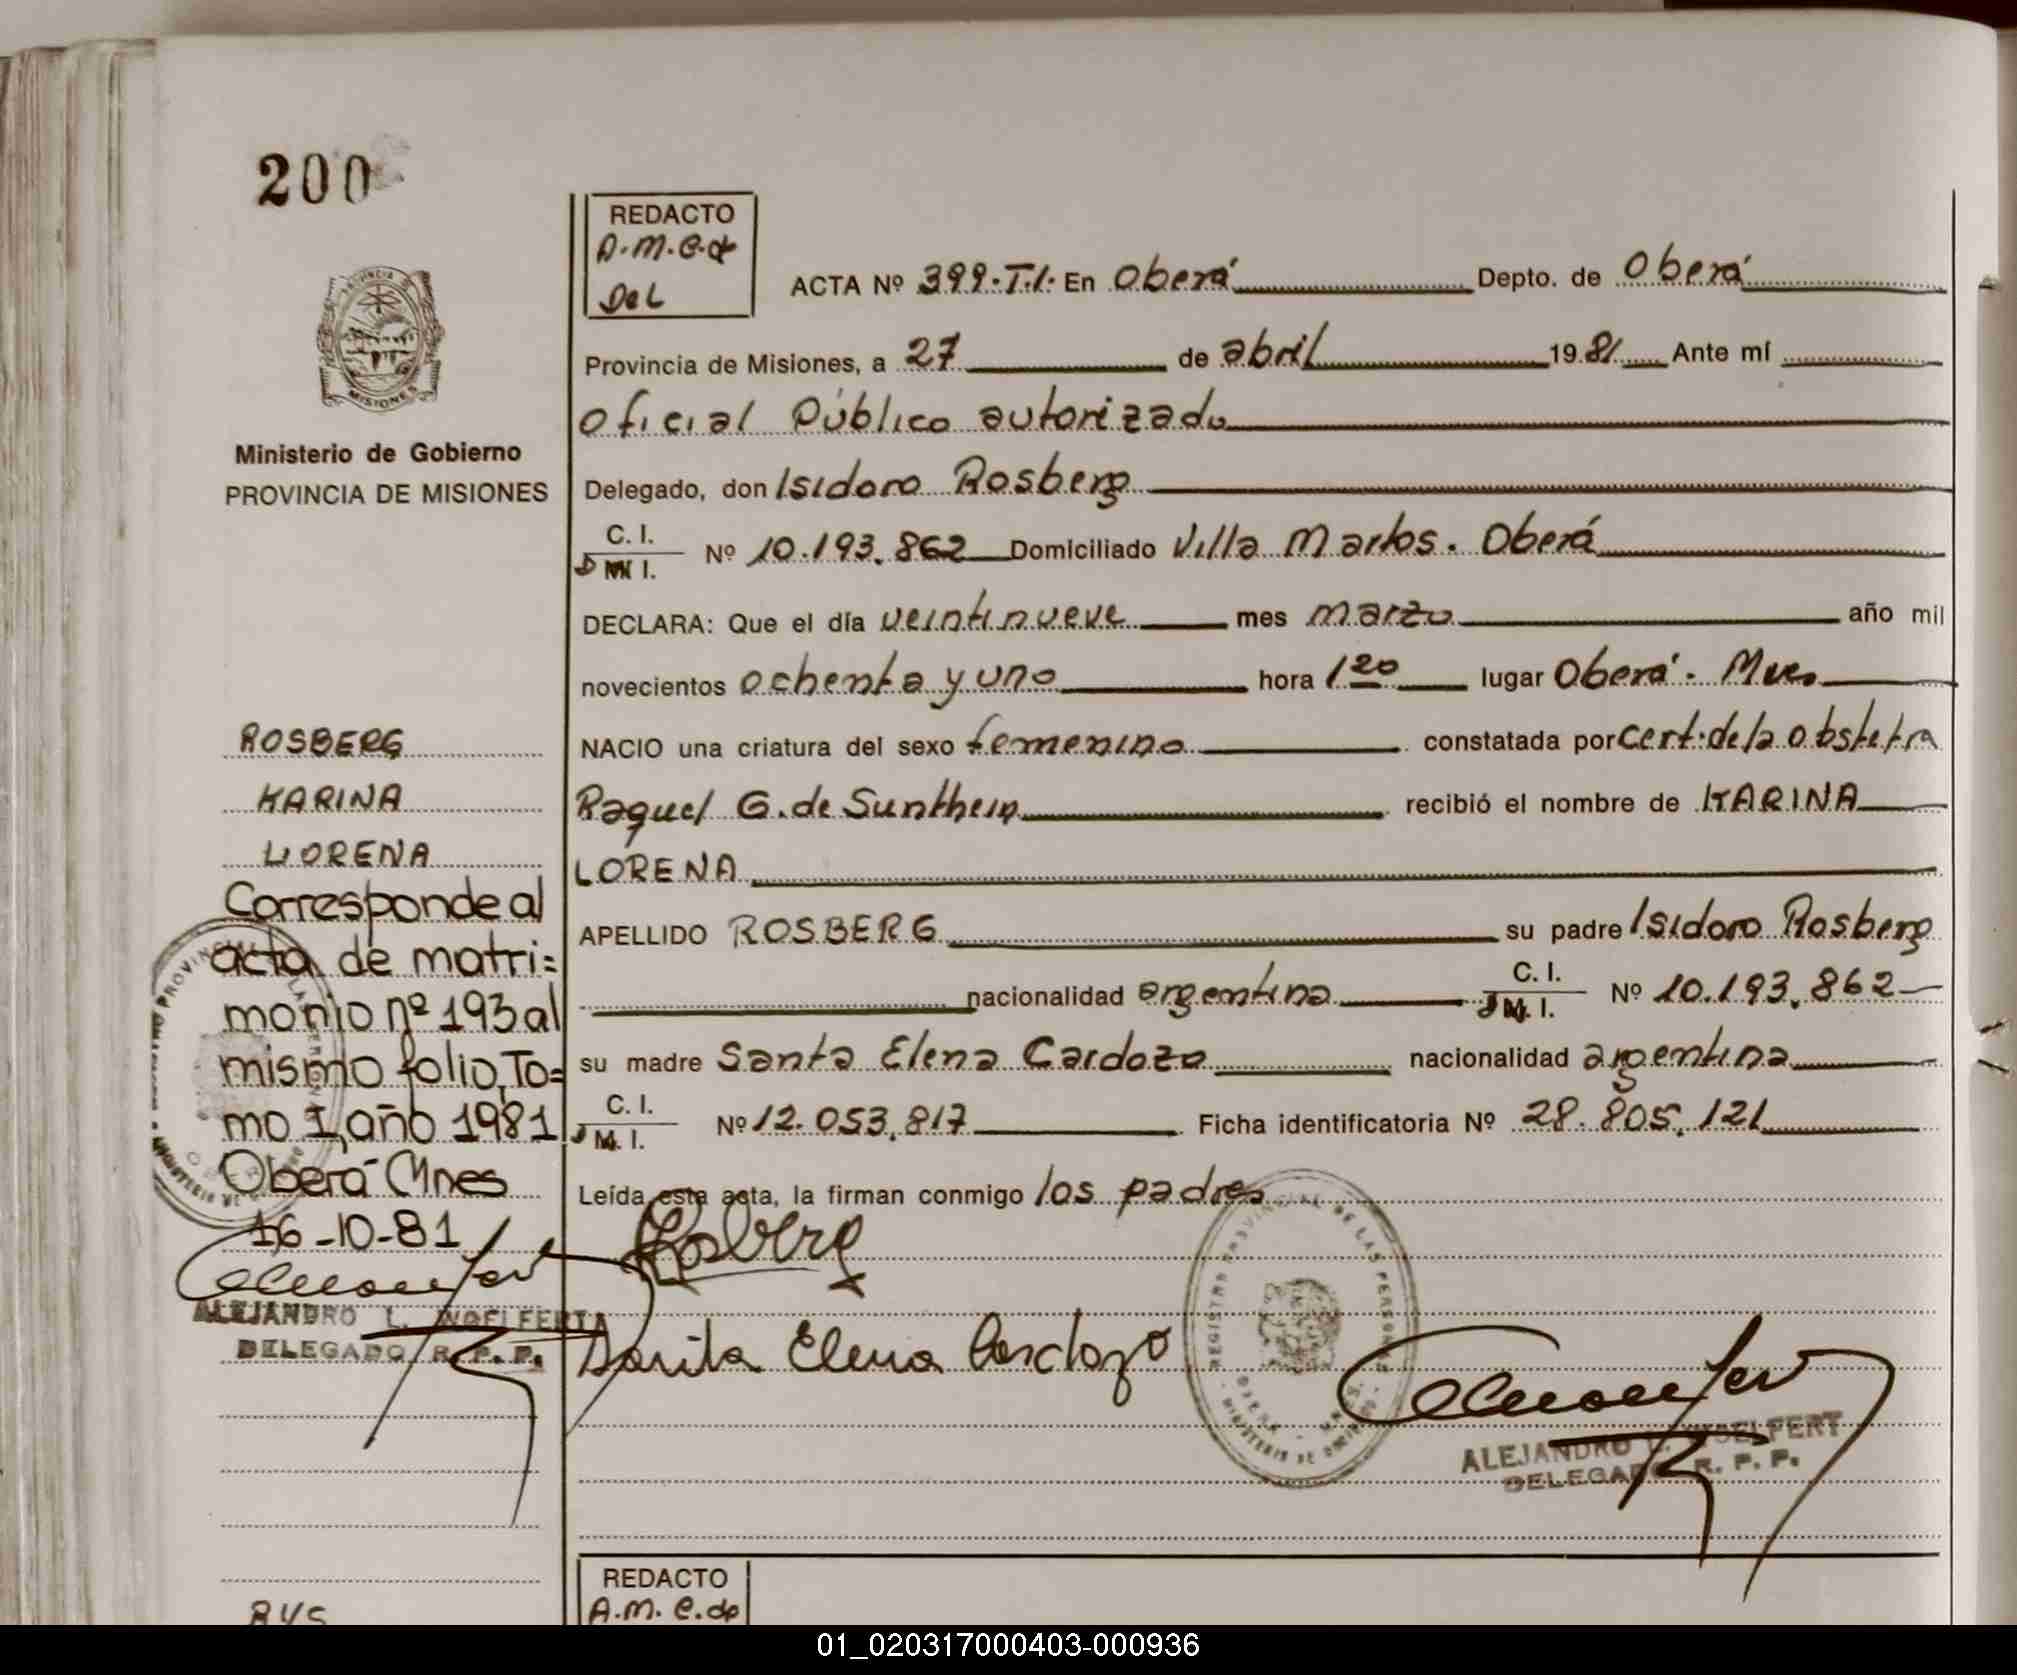 200
REDACTO
A.M.C.de
Del
ACTA Nº 399.T.I. En Oberá Depto. de Oberá
Provincia de Misiones, a 27 de abril 1981 Ante mí
Oficial Público autorizado
Ministerio de Gobierno
PROVINCIA DE MISIONES
Delegado, don Isidoro Rosberg
C. I.
D M I. Nº 10.193.862 Domiciliado Villa Martos. Oberá
DECLARA: Que el día veintinueve mes marzo año mil
novecientos ochenta y uno hora 1 20 lugar Oberá. Mnes
NACIO una criatura del sexo femenino constatada por cert. de la obstetra
Raquel G. de Sunthein recibió el nombre de KARINA
LORENA
APELLIDO ROSBERG su padre Isidoro Rosberg
nacionalidad argentina C. I. D M. I. Nº 10.193.862
su madre Santa Elena Cardozo nacionalidad argentina
C. I. D M. I. Nº 12.053.817 Ficha identificatoria Nº 28.805.121
Leída esta acta, la firman conmigo los padres
Rosberg
Santa Elena Cardozo
REGISTRO PROVINCIAL DE LAS PERSONAS
OBERA - MNES.
MINISTERIO DE GOBIERNO
ALEJANDRO L. WOELFERT
DELEGADO R. P. P.
ROSBERG
KARINA
LORENA
Corresponde al
acta de matri=
monio nº 193 al
mismo folio, To=
mo I, año 1981
Oberá Mnes
16-10-81
ALEJANDRO L. WOELFERT
DELEGADO R. P. P.
REDACTO
A.M.C.de
01_020317000403-000936